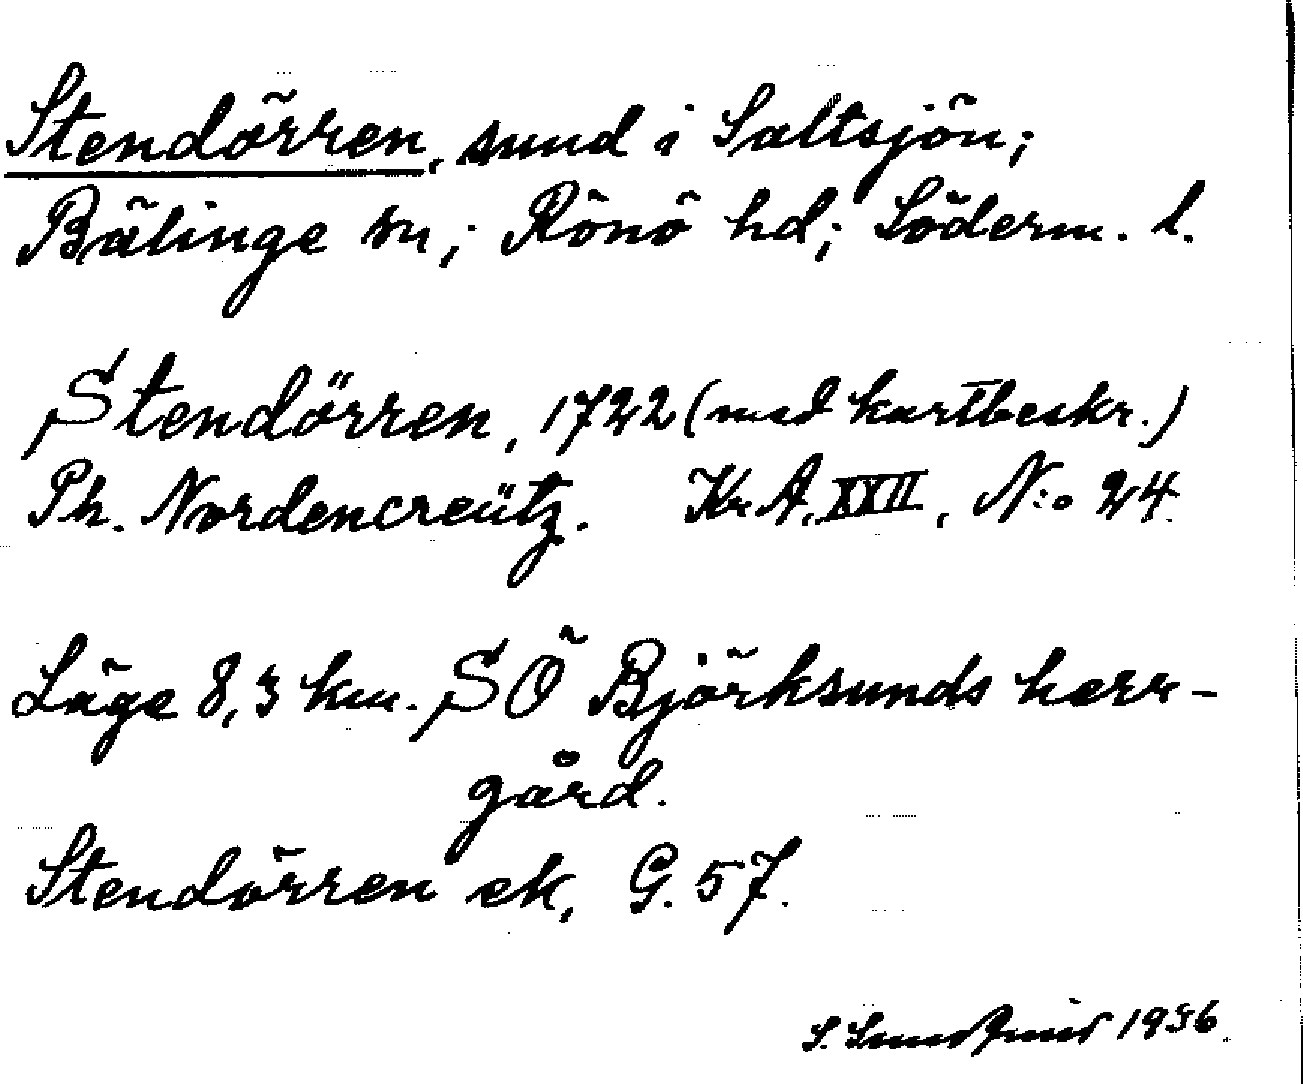 Stendörren, sund i Saltsjön;
Bälinge sn; Rönö hd; Söderm. l.
Stendörren, 1722 (med kartbeskr.)
Ph. Nordencreütz. Kr.A. XXII, N:o 24.
Läge 8,3 km. SÖ Björksunds herr-
gård.
Stendörren ek, G. 57.
S. 1936.